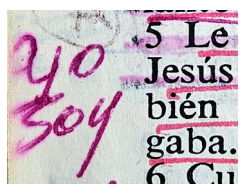 yo
soy
5 Le
Jesús
bién
gaba.
6 Cu